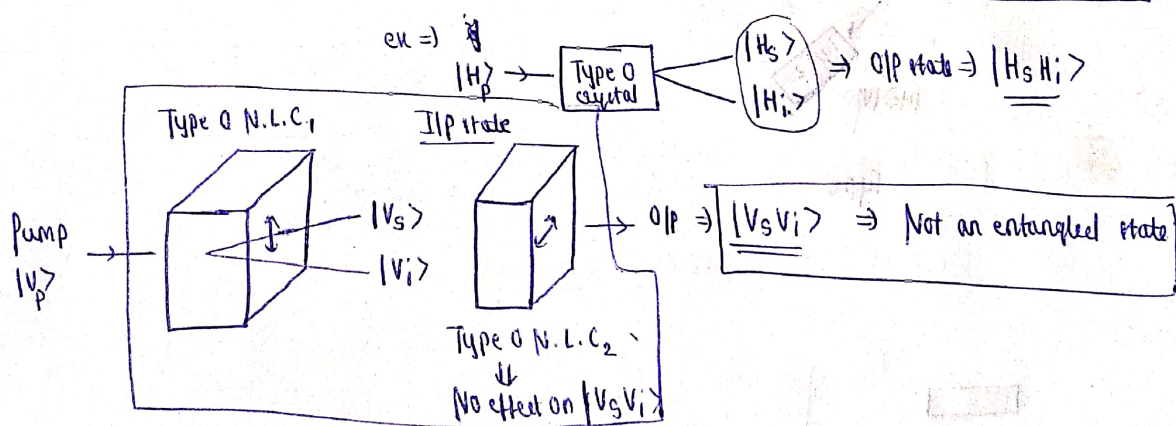 ex ⇒
|H_p⟩ → Type 0 crystal |H_s⟩ |H_i⟩ ⇒ O/P state ⇒ |H_s H_i⟩
Type 0 N.L.C₁
I/P state
Pump |V_p⟩
|V_s⟩
|V_i⟩
→ O/P ⇒ |V_s V_i⟩ ⇒ Not an entangled state
Type 0 N.L.C₂
⇓
No effect on |V_s V_i⟩